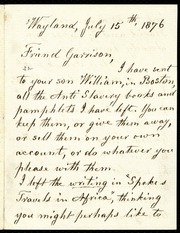 Wayland, July 15th, 1876
Friend Garrison,
I have sent
to your son William, in Boston,
all the Anti Slavery books and
pamphlets I have left. You can
keep them, or give them away,
or sell them on your own
account, or do whatever you
please with them.
I left the writing in "Speke's
Travels in Africa," thinking
you might perhaps like to